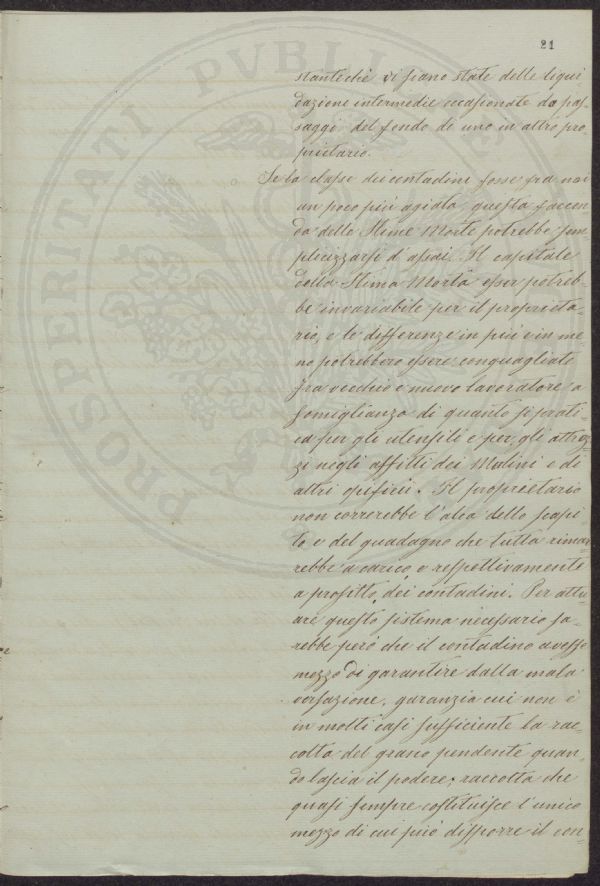 21
stantechè vi siano state delle liqui-
dazione intermedie occasionate da pas-
saggi del fondo di uno in altro pro-
prietario.
Se la classe dei contadini fosse fra noi
un poco più agiata, questa faccen-
da delle Stime Morte potrebbe sem-
plicizzarsi d'assai. Il capitale
della Stima Morta esser potreb-
be invariabile per il proprieta-
rio, e le differenze in più e in me-
no potrebbero essere conguagliate
fra vecchio e nuovo lavoratore a
somiglianza di quanto si prati-
ca per gli utensili e per gli attrez-
zi negli affitti dei Mulini e di
altri opificii. Il proprietario
non correrebbe l'alea dello scapi-
to, e del guadagno che tutta rimar-
rebbe a carico, e respettivamente
a profitto, dei contadini. Per attu-
are questo sistema necessario sa-
rebbe però che il contadino avesse
mezzo di garantire dalla mala
versazione, garanzia cui non è
in molti casi sufficiente la rac-
colta del grano pendente quan-
do lascia il podere; raccolta che
quasi sempre costituisce l'unico
mezzo di cui può disporre il con-
PROSPERITATI PVBLICAE